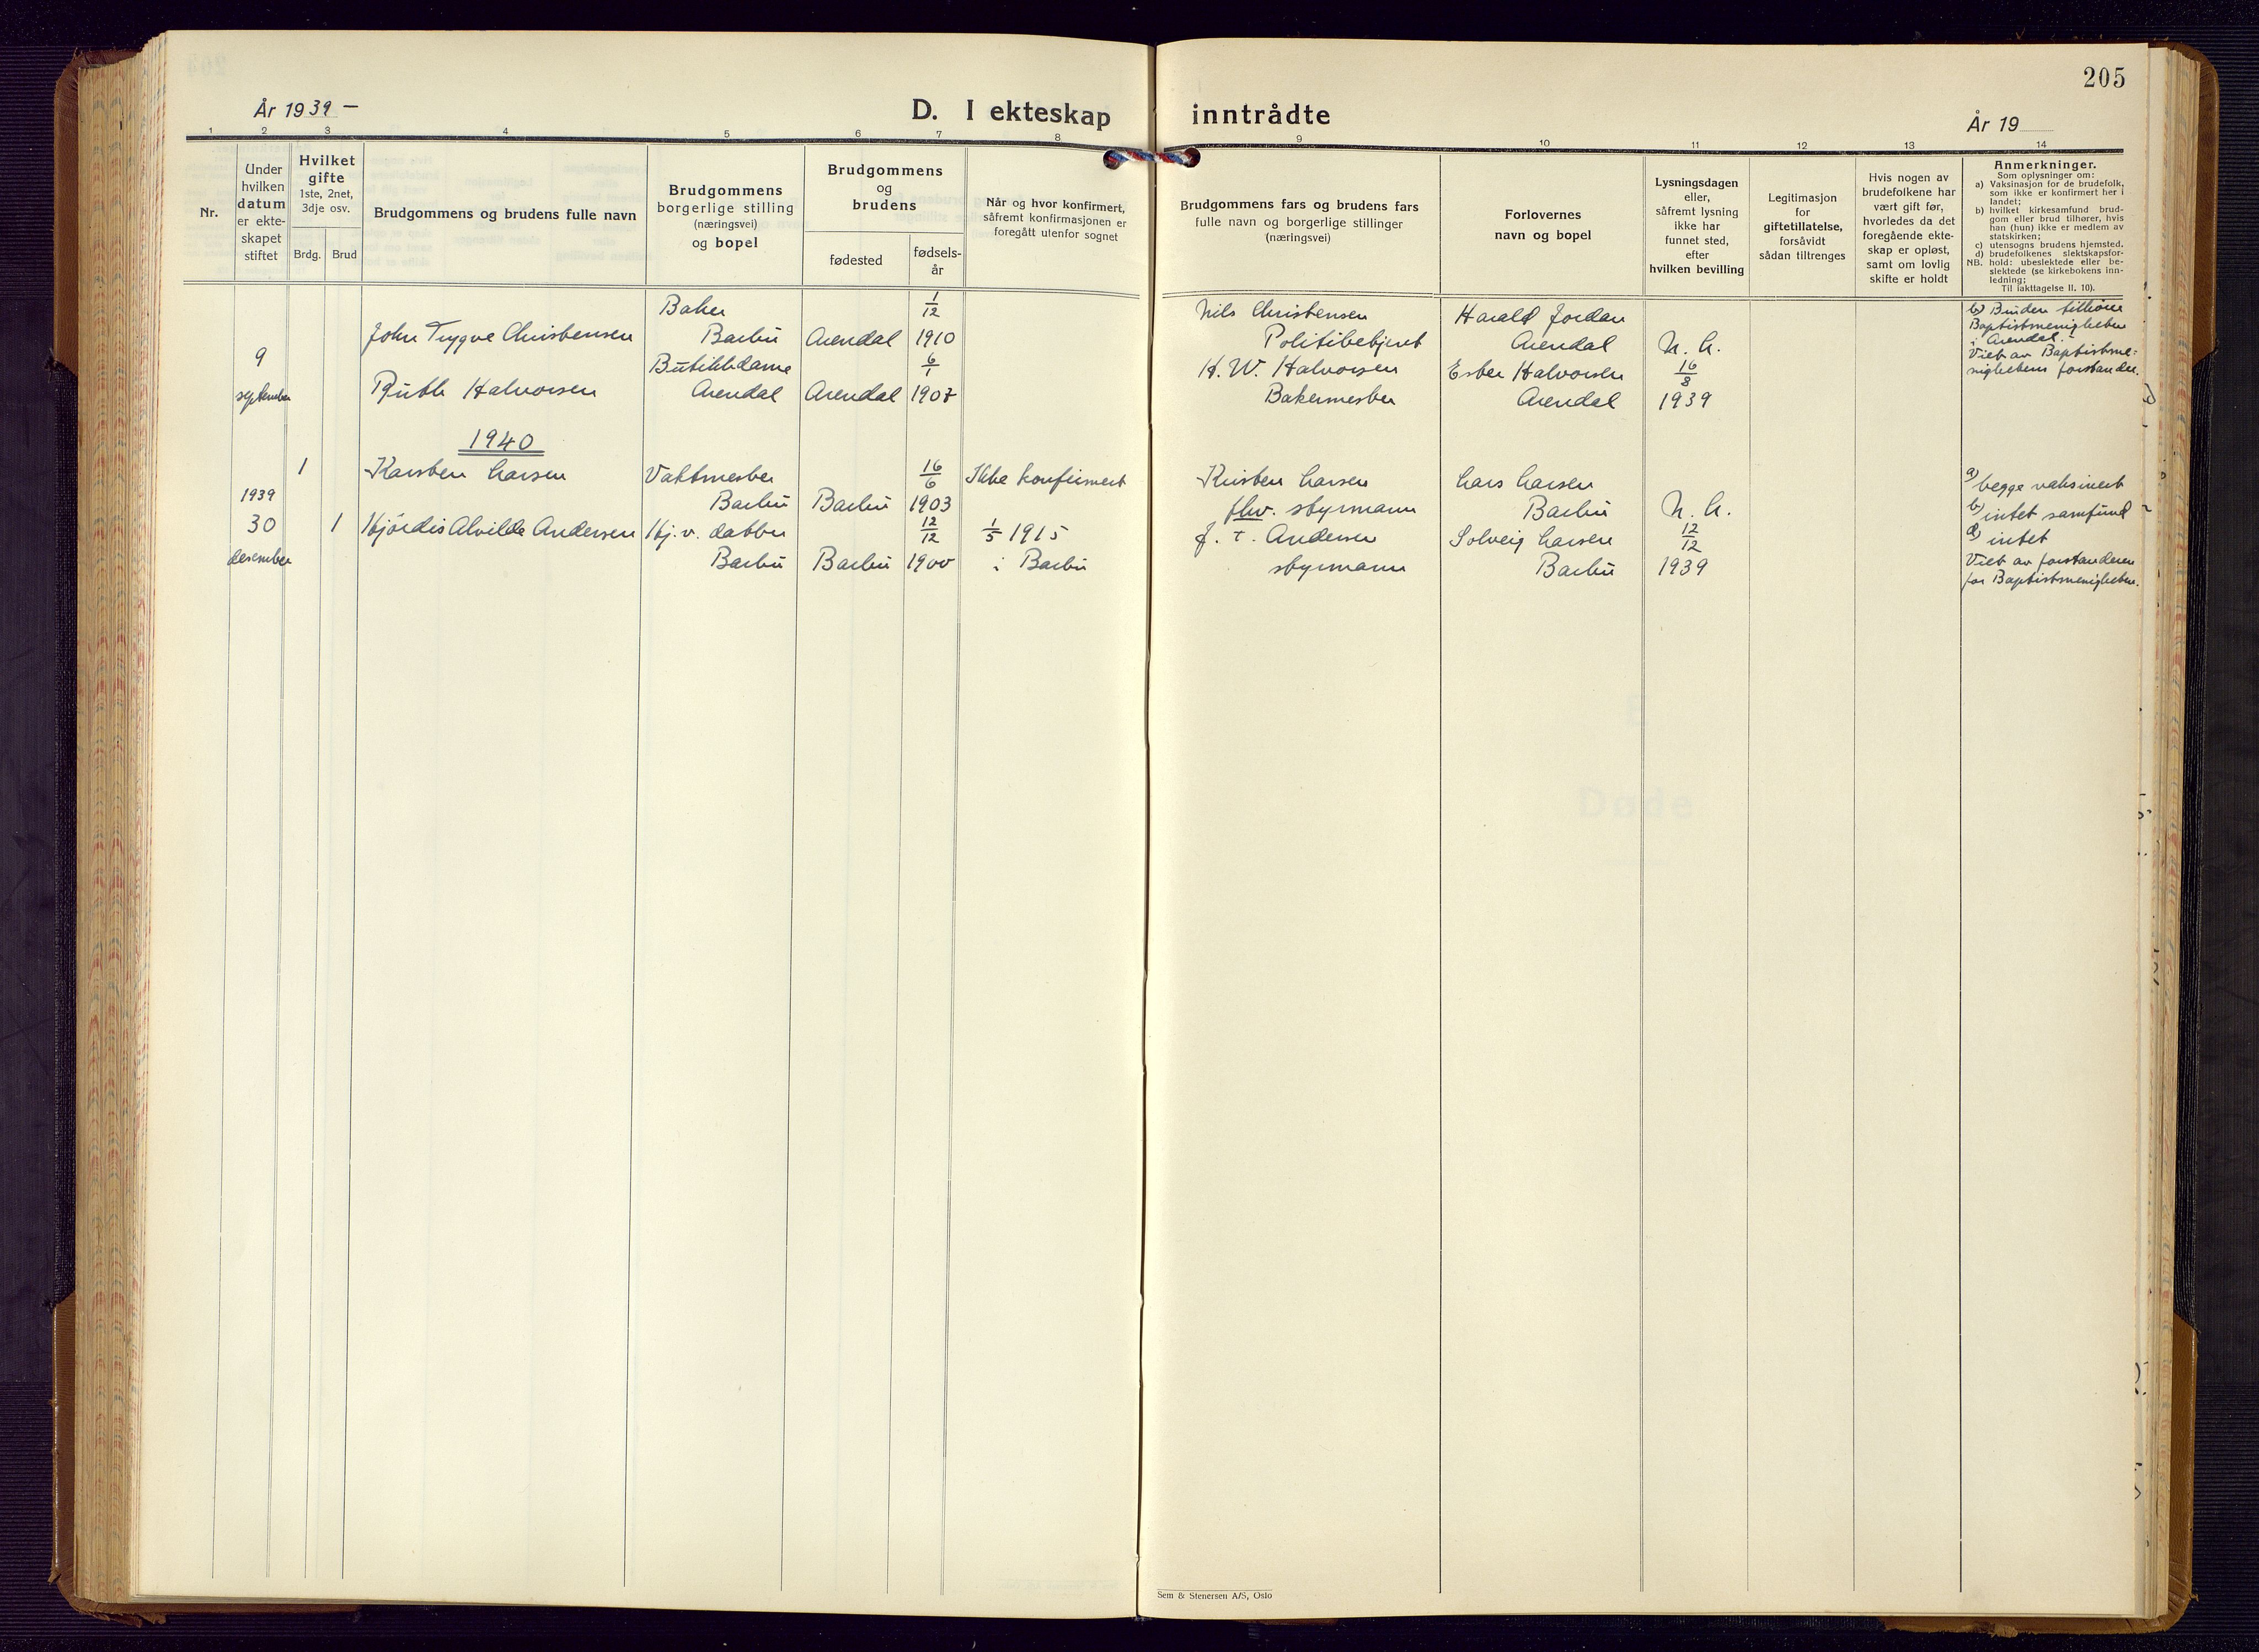 205
År 1939 —
D. I ekteskap inntrådte
År 19
1 2 3 4 5 6 7 8 9 10 11 12 13 14
Nr.
Under
hvilken
datum
er ekte-
skapet
stiftet
Hvilket
gifte
1ste, 2net,
3dje osv.
Brdg. Brud
Brudgommens og brudens fulle navn
Brudgommens
borgerlige stilling
(næringsvei)
og bopel
Brudgommens
og
brudens
fødested
fødsels-
år
Når og hvor konfirmert,
såfremt konfirmasjonen er
foregått utenfor sognet
Brudgommens fars og brudens fars
fulle navn og borgerlige stillinger
(næringsvei)
Forlovernes
navn og bopel
Lysningsdagen
eller,
såfremt lysning
ikke har
funnet sted,
efter
hvilken bevilling
Legitimasjon
for
giftetillatelse,
forsåvidt
sådan tiltrenges
Hvis nogen av
brudefolkene har
vært gift før,
hvorledes da det
foregående ekte-
skap er opløst,
samt om lovlig
skifte er holdt
Anmerkninger.
Som oplysninger om:
a) Vaksinasjon for de brudefolk,
som ikke er konfirmert her i
landet;
b) hvilket kirkesamfund brud-
gom eller brud tilhører, hvis
han (hun) ikke er medlem av
statskirken;
c) utensogns brudens hjemsted.
d) brudefolkenes slektskapsfor-
NB. hold: ubeslektede eller be-
slektede (se kirkebokens inn-
ledning;
Til iakttagelse II. 10).
9
september
John Trygve Christensen
Ruth Halvorsen
Baker
Barbu
Butikkdame
Arendal
Arendal
Arendal
1/12
1910
6/1
1907
Nils Christensen
Politibetjent
H. W. Halvorsen
Bakermester
Harald Jordan
Arendal
Ester Halvorsen
Arendal
N. L.
16/8
1939
b) Bruden tilhører
Baptistmenigheten
i Arendal.
Viet av Baptistme-
nighetens forstander.
1940
1939
30
desember
1
1
Karsten Larsen
Hjørdis Alvilde Andersen
Vaktmester
Barbu
Hj. v. datter
Barbu
Barbu
Barbu
16/6
1903
12/12
1900
Ikke konfirmert
1/5 1915
i Barbu
Kristen Larsen
fhv. styrmann
J. T. Andersen
styrmann
Lars Larsen
Barbu
Solveig Larsen
Barbu
N. L.
12/12
1939
a) begge vaksinert
b) intet samfund
d) intet
Viet av forstanderen
for Baptistmenigheten.
Døde
Sem & Stenersen A/S, Oslo